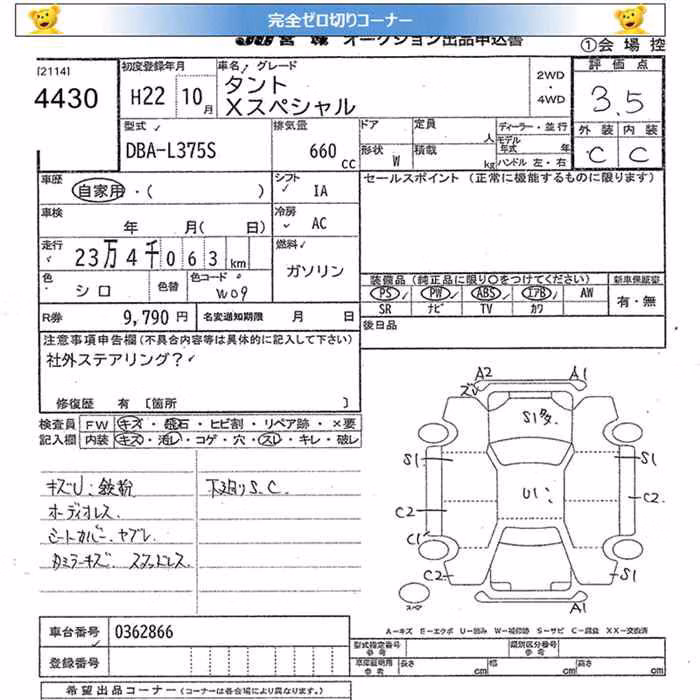 完全ゼロ切りコーナー
JU 宮城 オークション出品申込書
①会 場 控
[2114]
4430
初度登録年月
H22 10月
車名 ／ グレード
タント
Xスペシャル
2WD
・
4WD
評価点
3.5
外装 内装
C C
型式
DBA-L375S
排気量
660 cc
ドア
定員 人
形状 W
積載 kg
ディーラー・並行
モデル年式 年
ハンドル 左・右
車歴
自家用・( )
シフト
IA
セールスポイント (正常に機能するものに限ります)
車検
年 月( 日)
冷房
AC
走行
23万4千063km
燃料
ガソリン
色
シロ
色替
色コード
W09
装備品 (純正品に限り○をつけてください)
PS PW ABS エアB AW
SR ナビ TV カワ
新車保証書
有・無
R券
9,790 円
名変通知期限 月 日
後日品
注意事項申告欄 (不具合内容等は具体的に記入して下さい)
社外ステアリング?
修復歴 有 〔箇所 〕
検査員記入欄
FW キズ・飛石・ヒビ割・リペア跡・×要
内装 キズ・汚レ・コゲ・穴・スレ・キレ・破レ
キズU、鉄粉
下廻りS.C.
オーディオレス
シートカバー、ヤブレ
スタッドレス
A2 A1
S1
S1 S1
U1
C2 C2
C1
C2 S1
スペア
A1
A−キズ E−エクボ U−凹み W−補修跡 S−サビ C−腐食 XX−交換済
車台番号
0362866
登録番号
型式指定番号 参考
類別区分番号 参考
車庫証明用 参考
長さ cm 幅 cm 高さ cm
希望出品コーナー (コーナーは各会場により異なります。)